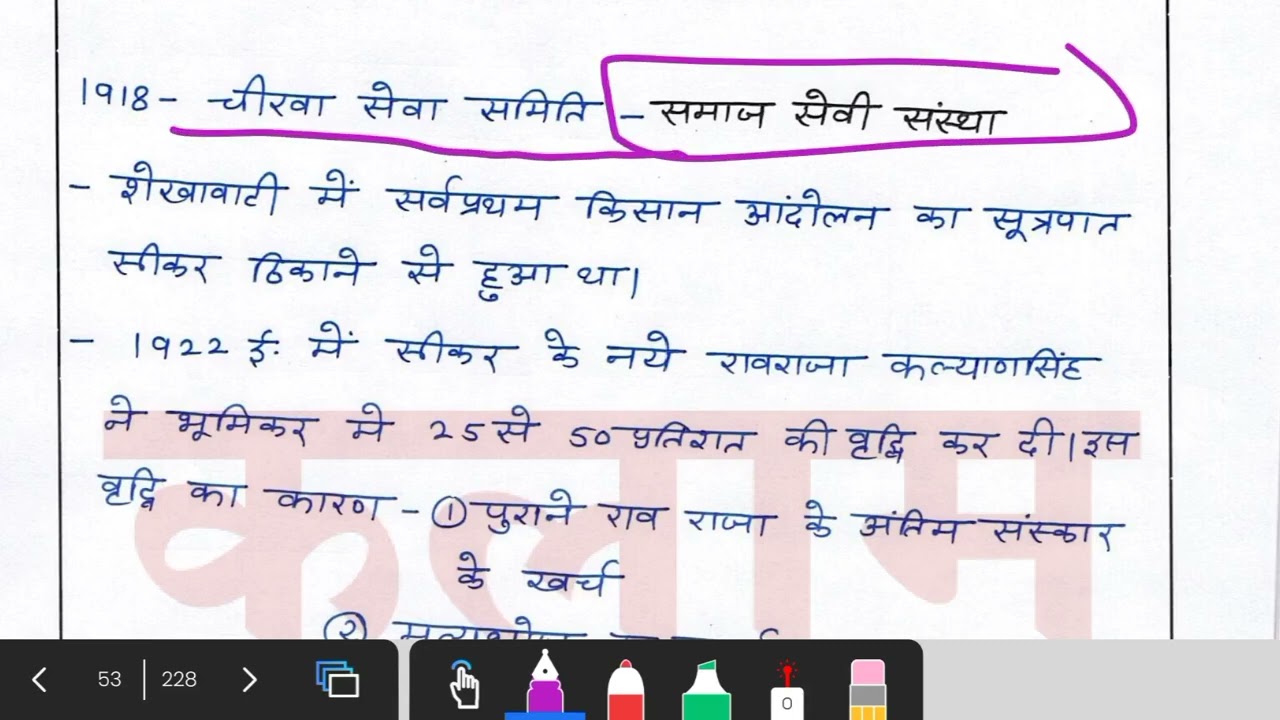 1918 - चीरवा सेवा समिति - समाज सेवी संस्था
- शेखावाटी में सर्वप्रथम किसान आंदोलन का सूत्रपात
सीकर ठिकाने से हुआ था।
- 1922 ई. में सीकर के नये रावराजा कल्याणसिंह
ने भूमिकर मे 25 से 50 प्रतिशत की वृद्धि कर दी। इस
वृद्धि का कारण - ① पुराने राव राजा के अंतिम संस्कार
के खर्च
②
कलाम
53 228
0